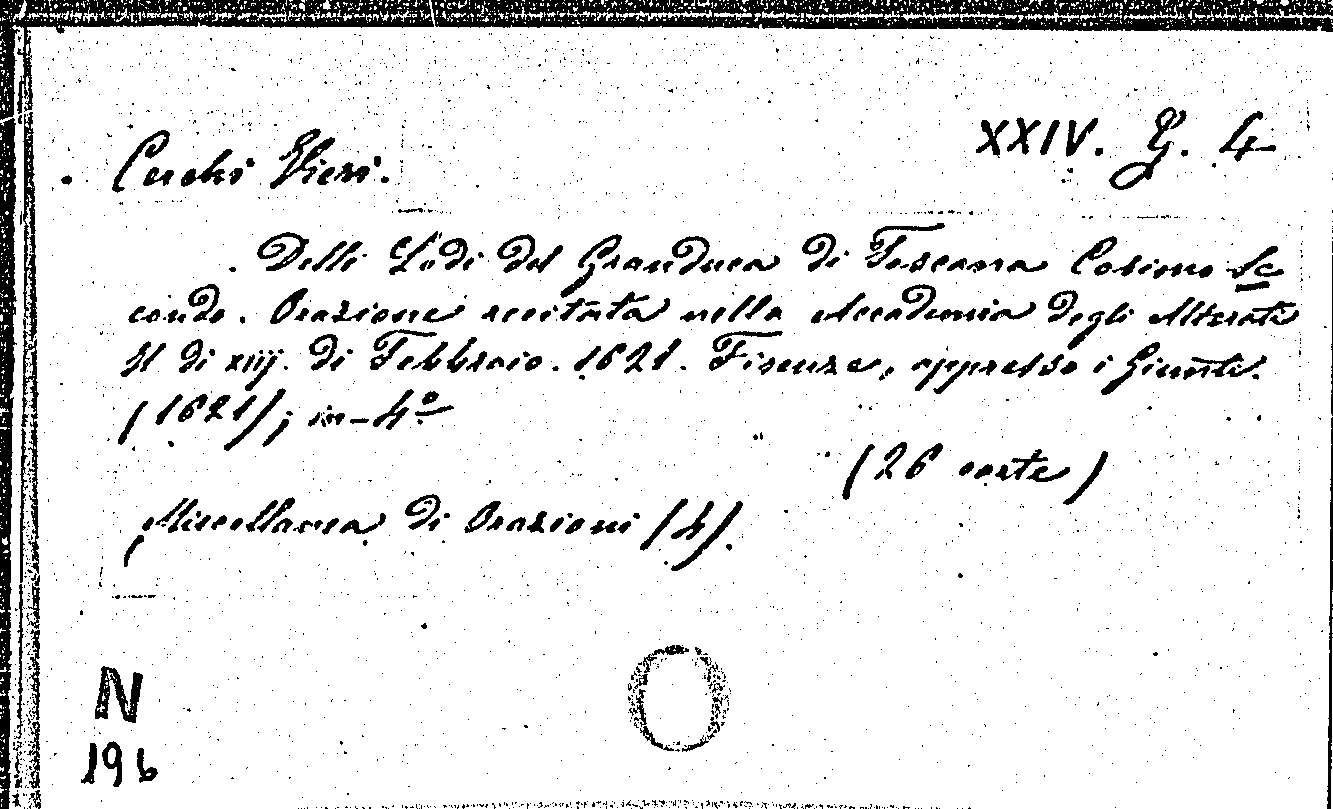 XXIV. G. 4
Cerchi Vieri.
Delle Lodi del Granduca di Toscana Cosimo Se
condo. Orazione recitata nella Accademia degli Alterati
Il di xiij. di Febbraio. 1621. Firenze, appresso i Giunti.
(1621); in-4º
(26 carte)
Miscellanea di Orazioni (4).
N
196